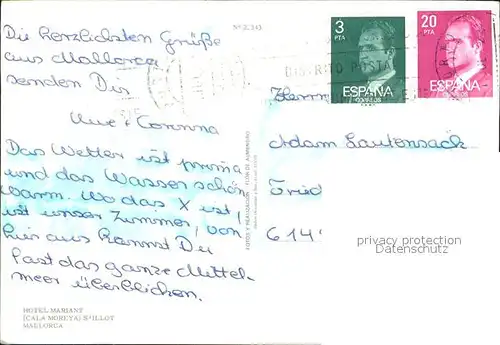 Nº 2.343
Die herzlichsten Grüße
aus Mallorca
senden Dir
Uwe + Corinna
Das Wetter ist prima
und das Wasser schön
warm. Wo das X ist,
ist unser Zimmer, von
hier aus kannst Du
fast das ganze Mittel-
meer überblicken.
HOTEL MARIANT
(CALA MOREYA) S'ILLOT
MALLORCA
FOTOS Y REALIZACION - FLOR DE ALMENDRO
3
PTA
ESPAÑA
CORREOS
20
PTA
ESPAÑA
DISTRITO POSTAL
Herrn
Adam Lautensack
Fried
614
privacy protection
Datenschutz